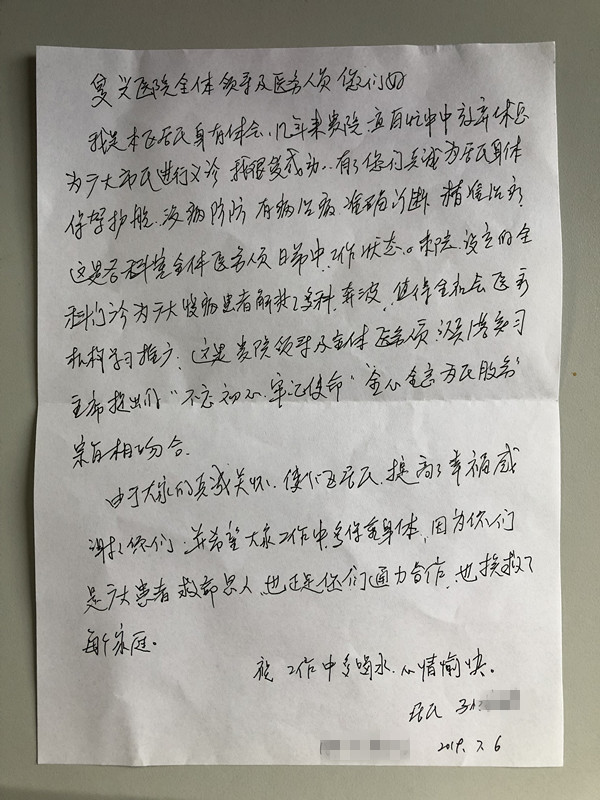 复兴医院全体领导及医务人员 您们好
我是本区居民身有体会,几年来贵院 百忙中中放弃休息
为广大市民进行义诊 我很受感动.有了您们真诚为居民身体
保驾护航.没病防防 有病治病.准确诊断 精准治疗
这是各科室全体医务人员 日常中.工作状态。贵院.设立的全
科门诊为广大慢病患者解救了多科.奔波,值得全社会医务
机构学习推广.这是贵院领导及全体医务人员.习
主席提出的"不忘初心.牢记使命"全心全意为民服务
宗旨相吻合.
由于大家的真诚关怀.使 区居民.提高了幸福感
谢谢你们.并希望大家工作中多保重身体.因为你们
是广大患者救命恩人.也正是您们通力合作.也挽救了
每个家庭。
祝 工作中多喝水.心情愉快。
居民
2019.7.6